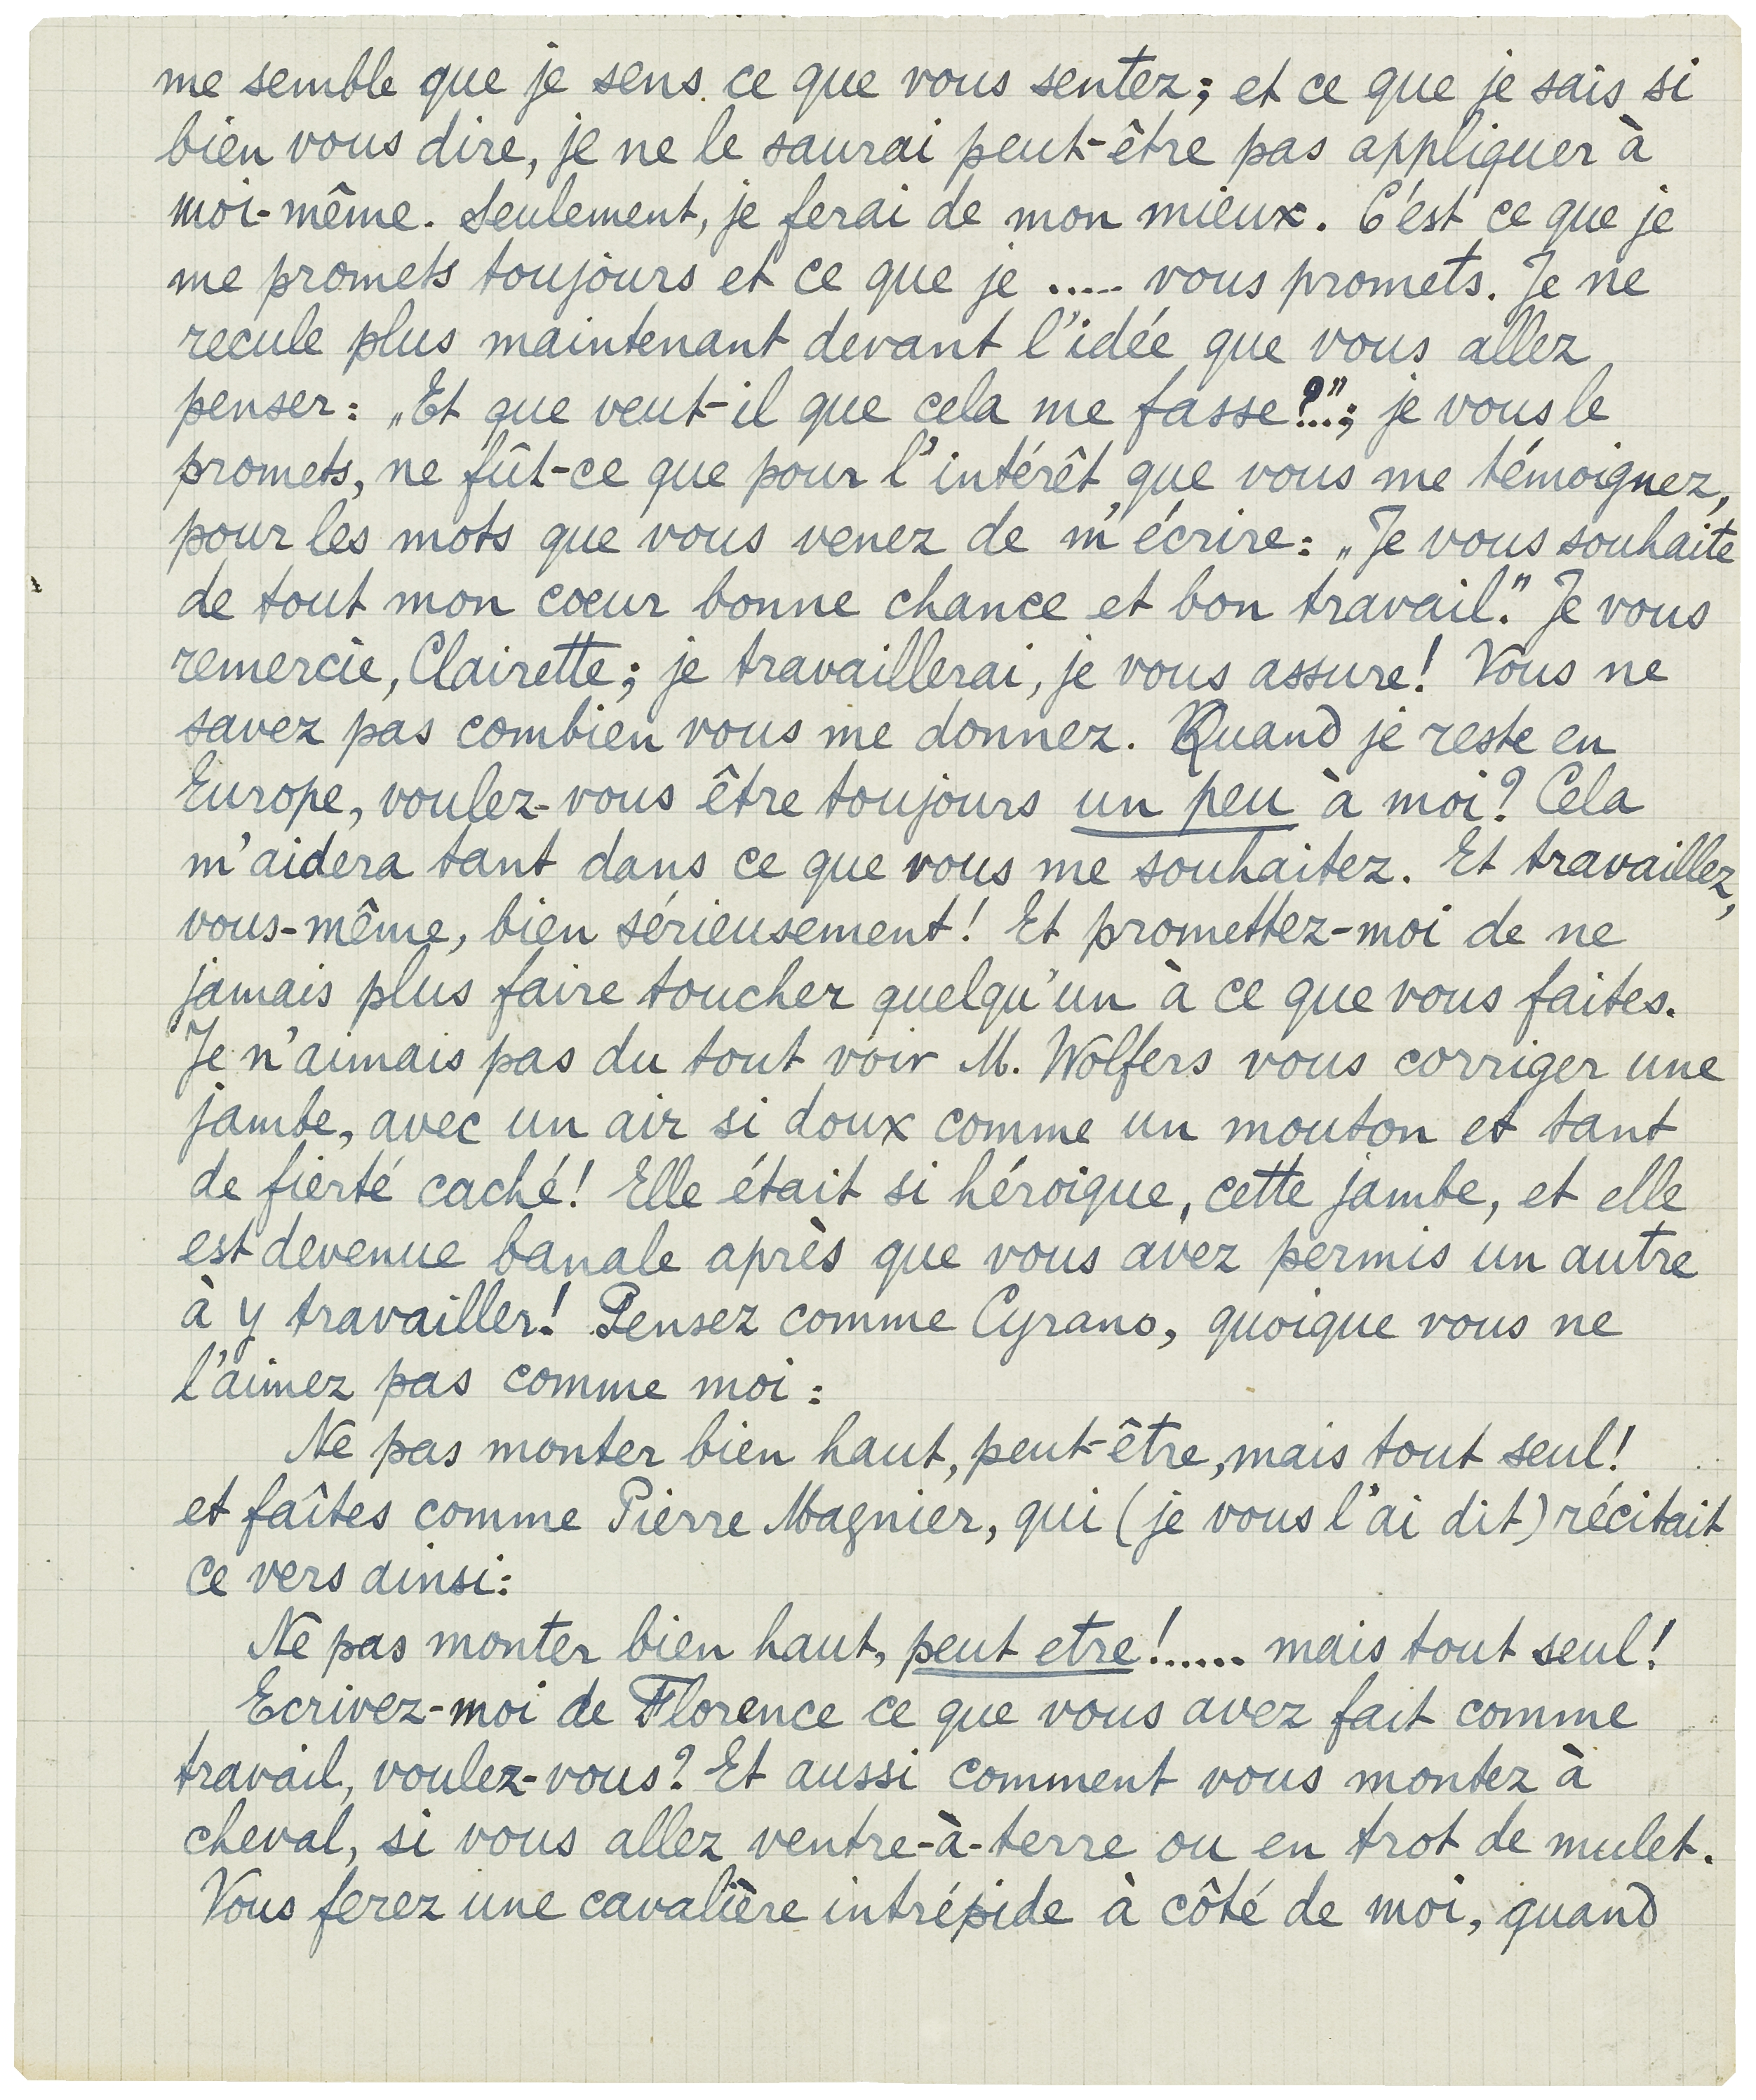 me semble que je sens ce que vous sentez; et ce que je sais si
bien vous dire, je ne le saurai peut-être pas appliquer à
moi-même. Seulement, je ferai de mon mieux. C'est ce que je
me promets toujours et ce que je ..... vous promets. Je ne
recule plus maintenant devant l'idée que vous allez
penser: „Et que veut-il que cela me fasse?..."; je vous le
promets, ne fût-ce que pour l'intérêt que vous me témoignez,
pour les mots que vous venez de m'écrire: „Je vous souhaite
de tout mon coeur bonne chance et bon travail." Je vous
remercie, Clairette; je travaillerai, je vous assure! Vous ne
savez pas combien vous me donnez. Quand je reste en
Europe, voulez-vous être toujours un peu à moi? Cela
m'aidera tant dans ce que vous me souhaitez. Et travaillez,
vous-même, bien sérieusement! Et promettez-moi de ne
jamais plus faire toucher quelqu'un à ce que vous faites.
Je n'aimais pas du tout voir M. Wolfers vous corriger une
jambe, avec un air si doux comme un mouton et tant
de fierté caché! Elle était si héroique, cette jambe, et elle
est devenue banale après que vous avez permis un autre
à y travailler! Pensez comme Cyrano, quoique vous ne
l'aimez pas comme moi:
Ne pas monter bien haut, peut-être, mais tout seul!
et faîtes comme Pierre Magnier, qui (je vous l'ai dit) récitait
ce vers ainsi:
Ne pas monter bien haut, peut etre!...... mais tout seul!
Ecrivez-moi de Florence ce que vous avez fait comme
travail, voulez-vous? Et aussi comment vous montez à
cheval, si vous allez ventre-à-terre ou en trot de mulet.
Vous ferez une cavalière intrépide à côté de moi, quand